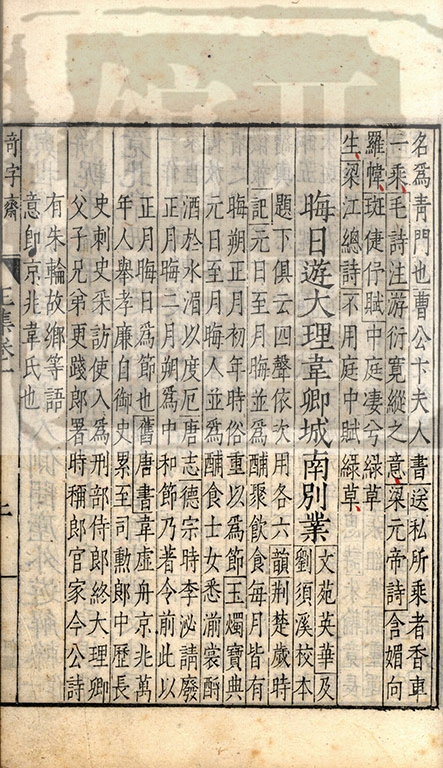 名爲靑門也曹公卞夫人書送私所乘者香車
一乘毛詩注游衍寬縱之意梁元帝詩含媚向
羅幃斑倢伃賦中庭淒兮綠草
生梁江總詩不用庭中賦綠草
晦日遊大理韋卿城南別業文苑英華及
劉須溪校本
題下俱云四聲依次用各六韻荆楚歲時
記元日至月晦並爲酺聚飮食每月皆有
晦朔正月初年時俗重以爲節玉燭寶典
元日至月晦人並爲酺食士女悉湔裳酹
酒於水湄以度厄唐志德宗時李泌請廢
正月晦二月朔爲中和節乃著令前此以
正月晦日爲節也舊唐書韋虛舟京兆萬
年人舉孝廉自御史累至司勲郎中歷長
史刺史采訪使入爲刑部侍郎終大理卿
父子兄弟更踐郎署時稱郎官家今公詩
有朱輪故鄉等語
意卽京兆韋氏也
奇字齋
卷一